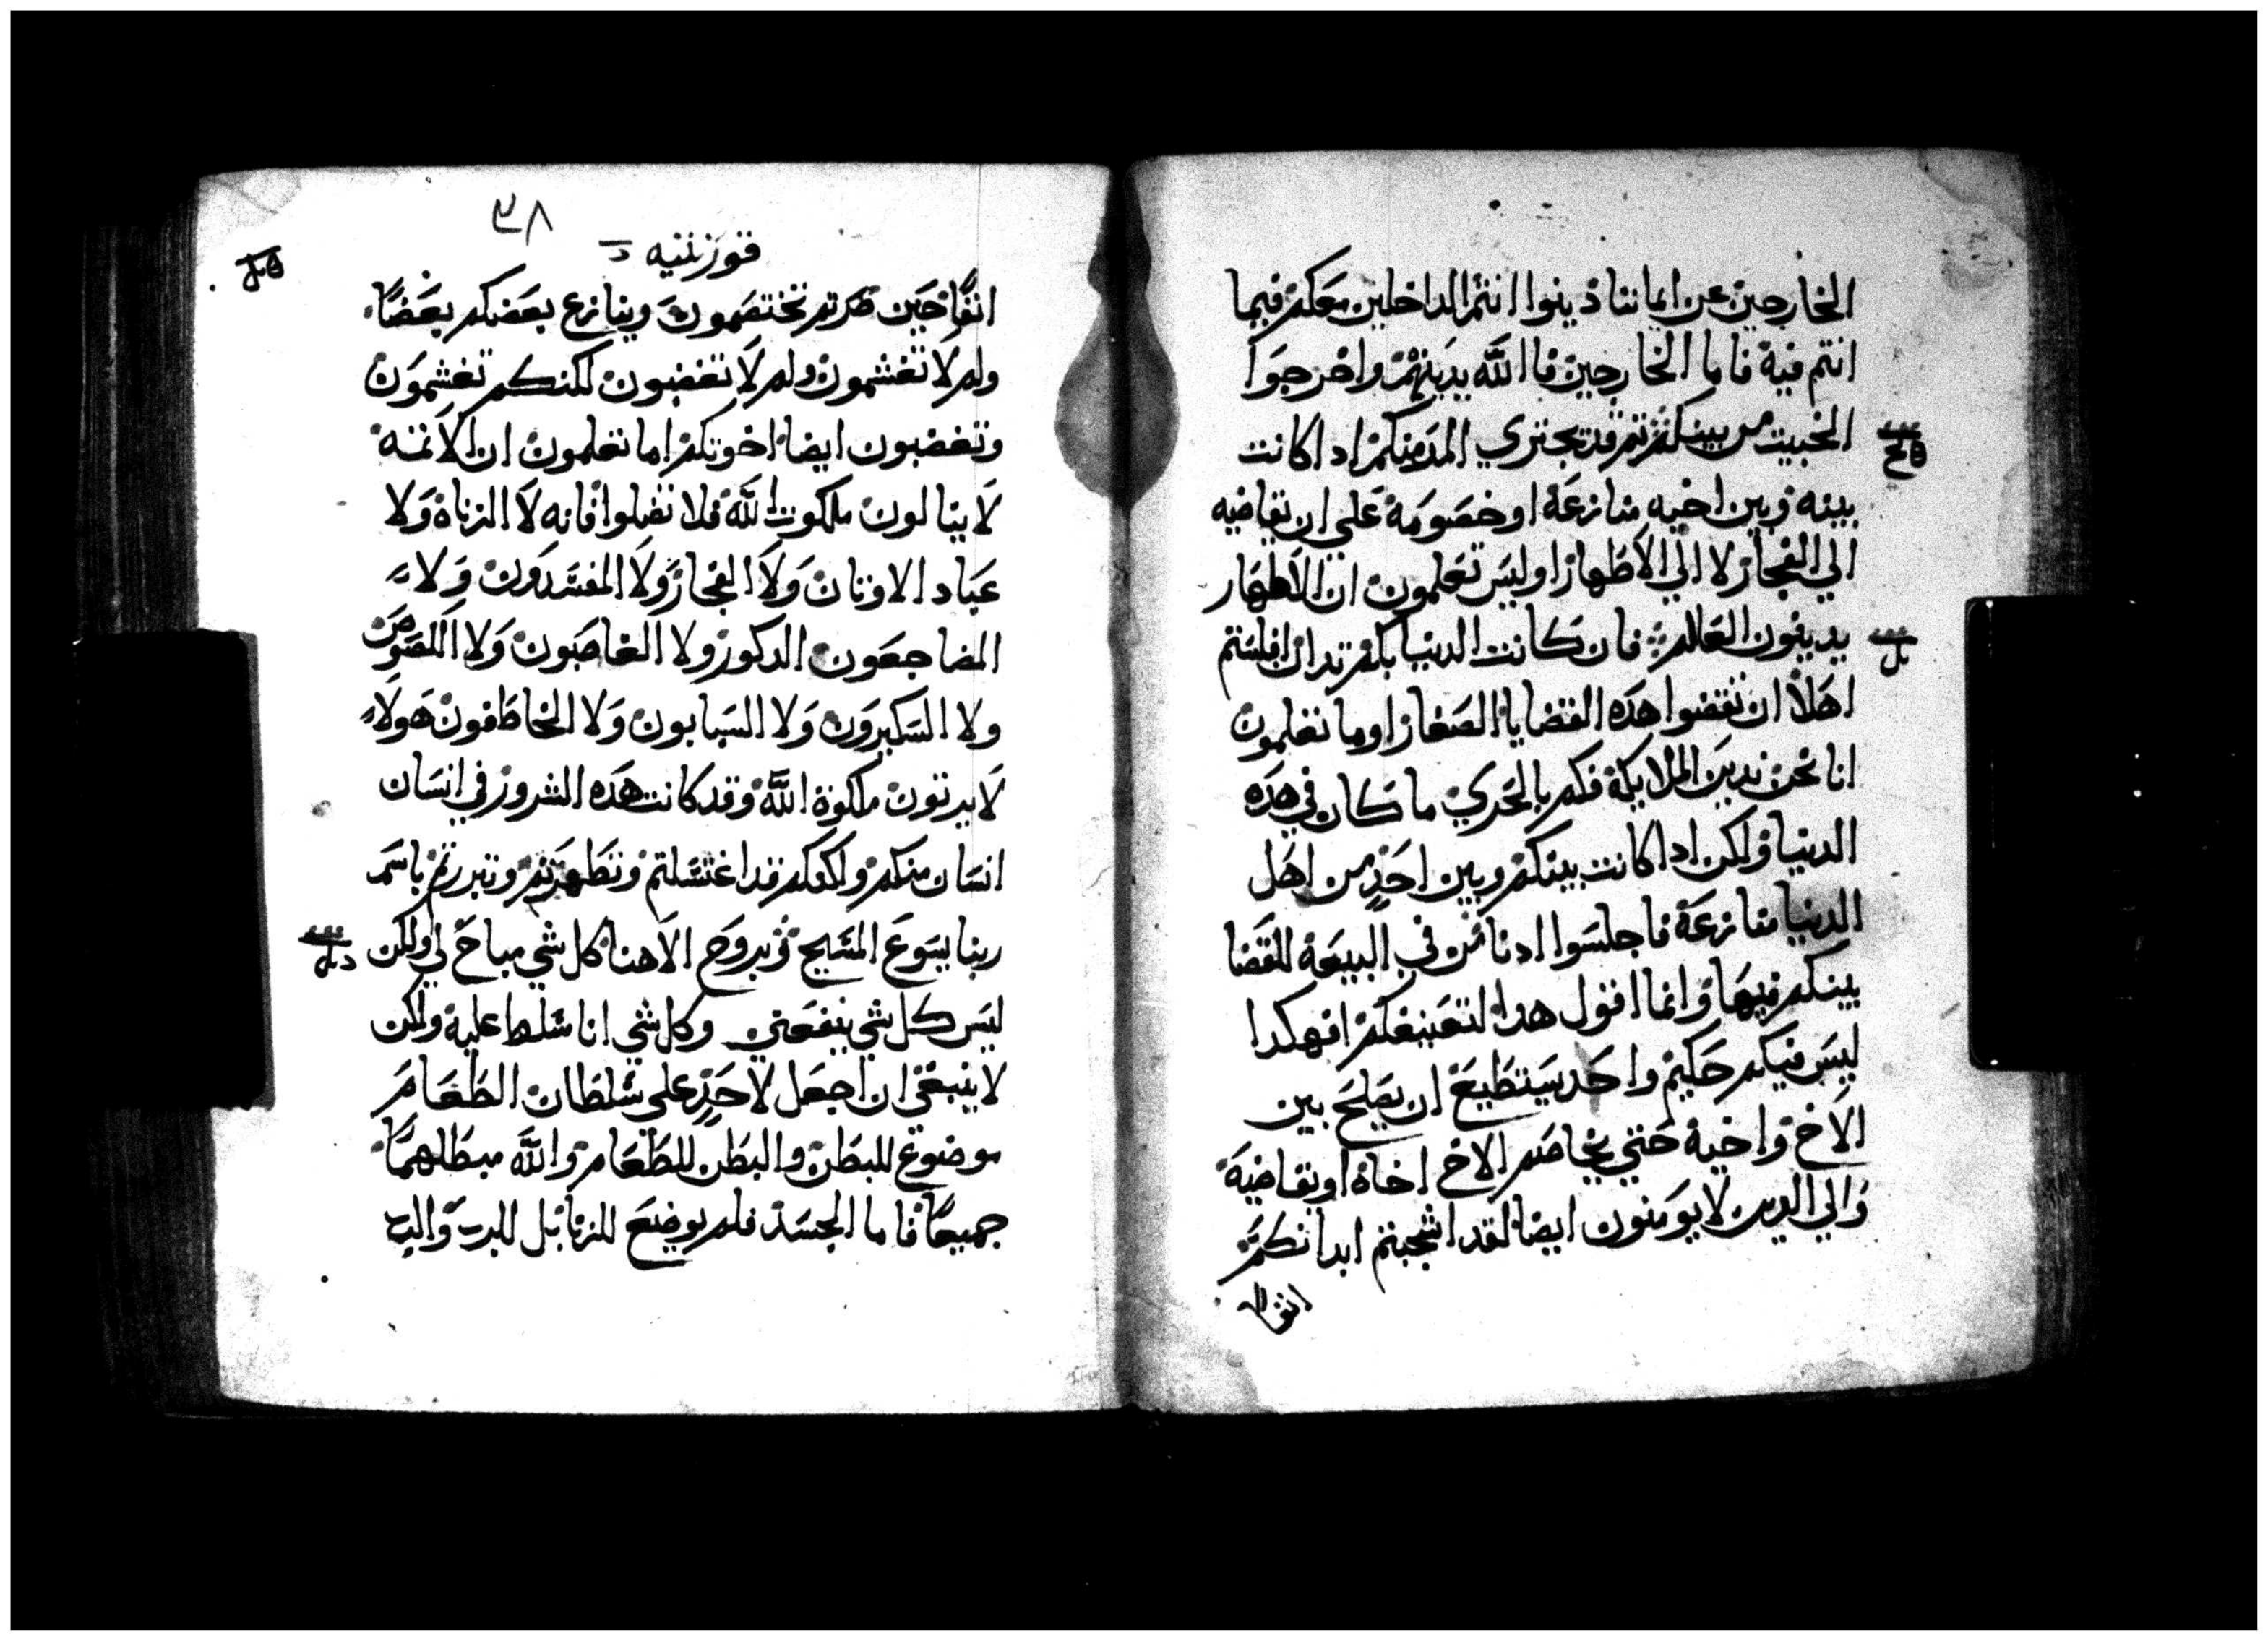 الخارجين عن ايماننا دينوا انتم الداخلين معكم فيما
انتم فيه فاما الخارجين فالله يدينهم واخرجوا
الخبيت من بينكم تم قد يجتري المر منكم ادا كانت
بينه وبين اخيه منازعة او خصومة علي ان يقاضيه
الي الفجار لا الي الاطهار اوليس تعلمون ان الاطهار
يدينون العالم فان كانت الدنيا بكم تدان افلستم
اهلا ان تقضوا هده القضايا الصغار اوما تعلمون
انا نحن ندين الملايكة فكم بالحري ما كان في هده
الدنيا ولكن ادا كانت بينكم وبين احد من اهل
الدنيا منازعة فاجلسوا ادنا من في البيعة للقضا
بينكم فيها وانما اقول هدا لتعنيفكم افهكدا
ليس فيكم حكيم واحد يستطيع ان يصلح بين
الاخ واخيه حتي يخاصم الاخ اخاه او يقاضيه
والي الدين لا يومنون ايضا لقد اشجبتم ابدانكم
قورنتيه
٣٨
انفا حين صرتم تختصمون وينازع بعضكم بعضا
ولم لا تغشمون ولم لا تغضبون لكنكم تغشمون
وتغضبون ايضا اخوتكم اما تعلمون ان الاتمه
لا ينالون ملكوت الله فلا تضلوا فانه لا الزناة ولا
عباد الاوتان ولا الفجار ولا المفسدون ولا
المضاجعون الدكور ولا الغاصبون ولا اللصوص
ولا السكيرون ولا السبابون ولا الخاطفون هولاء
لا يرتون ملكوة الله وقد كانت هده الشرور في انسان
انسان منكم ولكنكم قد اغتسلتم وتطهرتم وتبررتم باسم
ربنا يسوع المسيح وبروح الاهنا كل شي مباح لي ولكن
ليس كل شي ينفعني وكل شي انا مسلط عليه ولكن
لا ينبغي ان اجعل لاحد علي سلطان الطعام
موضوع للبطن والبطن للطعام والله مبطلهما
جميعا فاما الجسد فلم يوضع للزنا بل للرب والرب